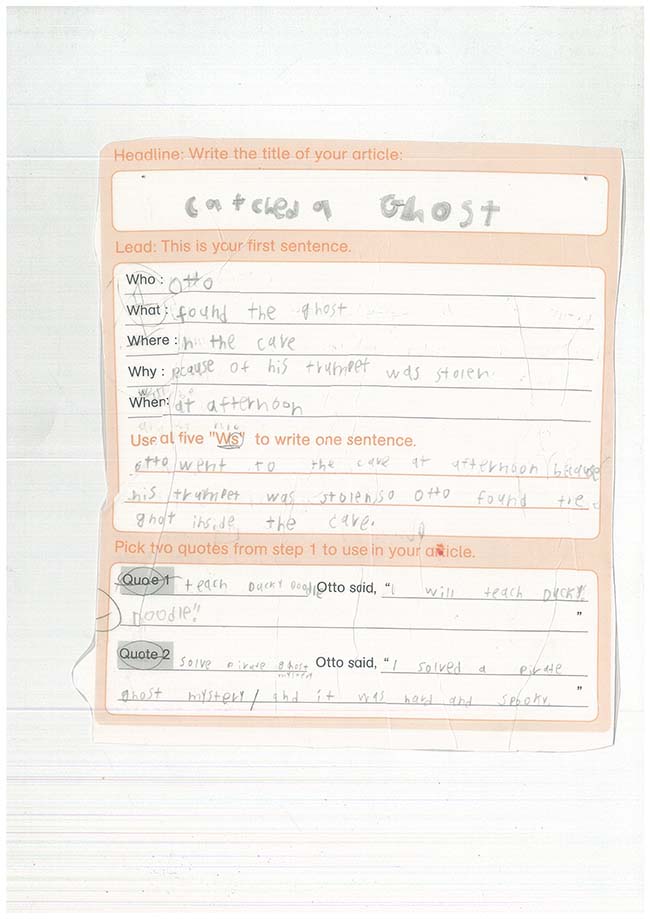 Headline: Write the title of your article:
catched a Ghost
Lead: This is your first sentence.
Who : Otto
What : found the ghost
Where : n the cave
Why : ecause of his trumpet was stolen.
When: at afternoon
Use al five "Ws" to write one sentence.
otto went to the cave at afternoon because
his trumpet was stolen, so Otto found the
ghot inside the cave.
Pick two quotes from step 1 to use in your aticle.
Quoe 1 teach Ducky Doodle Otto said, "I will teach Ducky
Doodle!" "
Quote 2 solve pirate ghost mystery Otto said, "I solved a pirate
ghost mystery / and it was hard and spooky. "